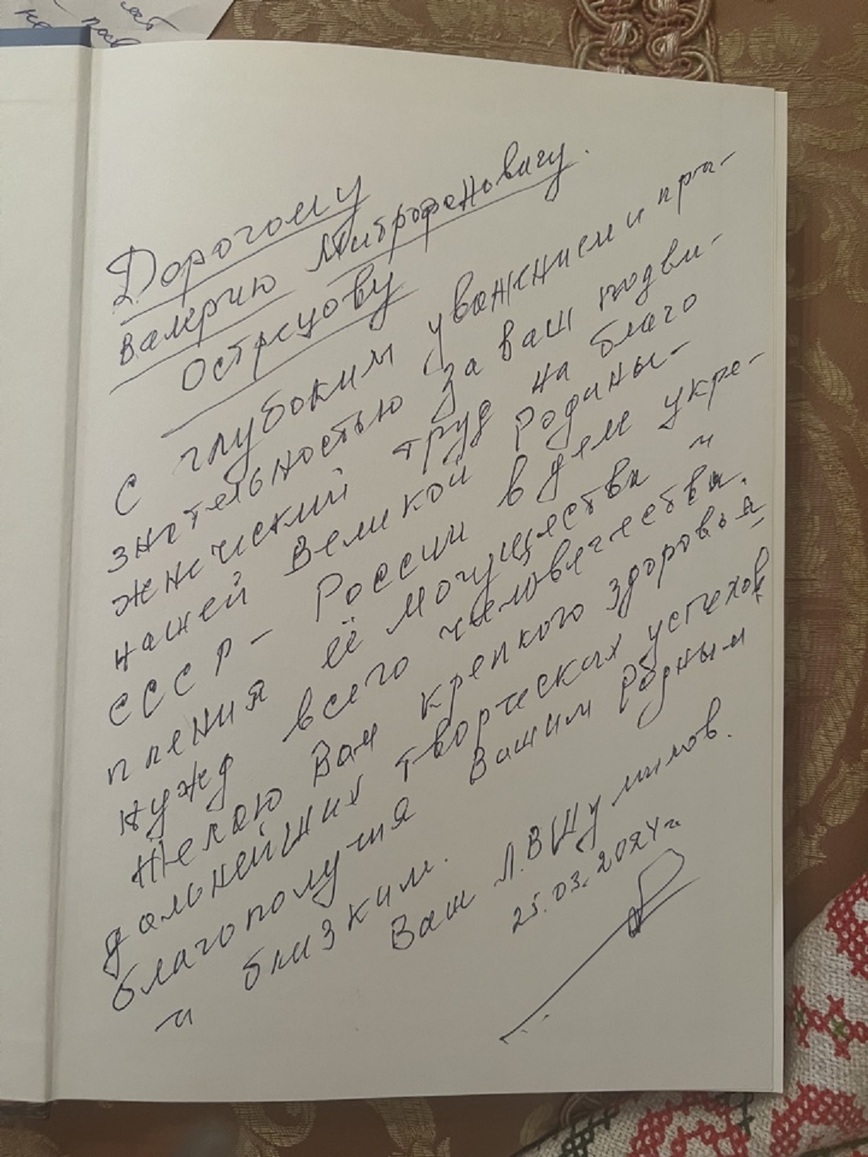 Дорогому
Валерию Митрофановичу.
Острецову
С глубоким уважением и при-
знательностью за ваш подви-
жнический труд на благо
нашей Великой Родины-
СССР - России в деле укре-
пления её могущества и
нужд всего человечества.
Желаю Вам крепкого здоровья,
дальнейших творческих успехов,
благополучия Вашим родным
и близким.
Ваш Л.В Шумилов.
25.03.2024г